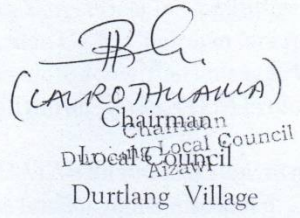 (LALROTHUAMA)
Chairman
Chairman
Durtlang Local Council
Aizawl
Local Council
Durtlang Village